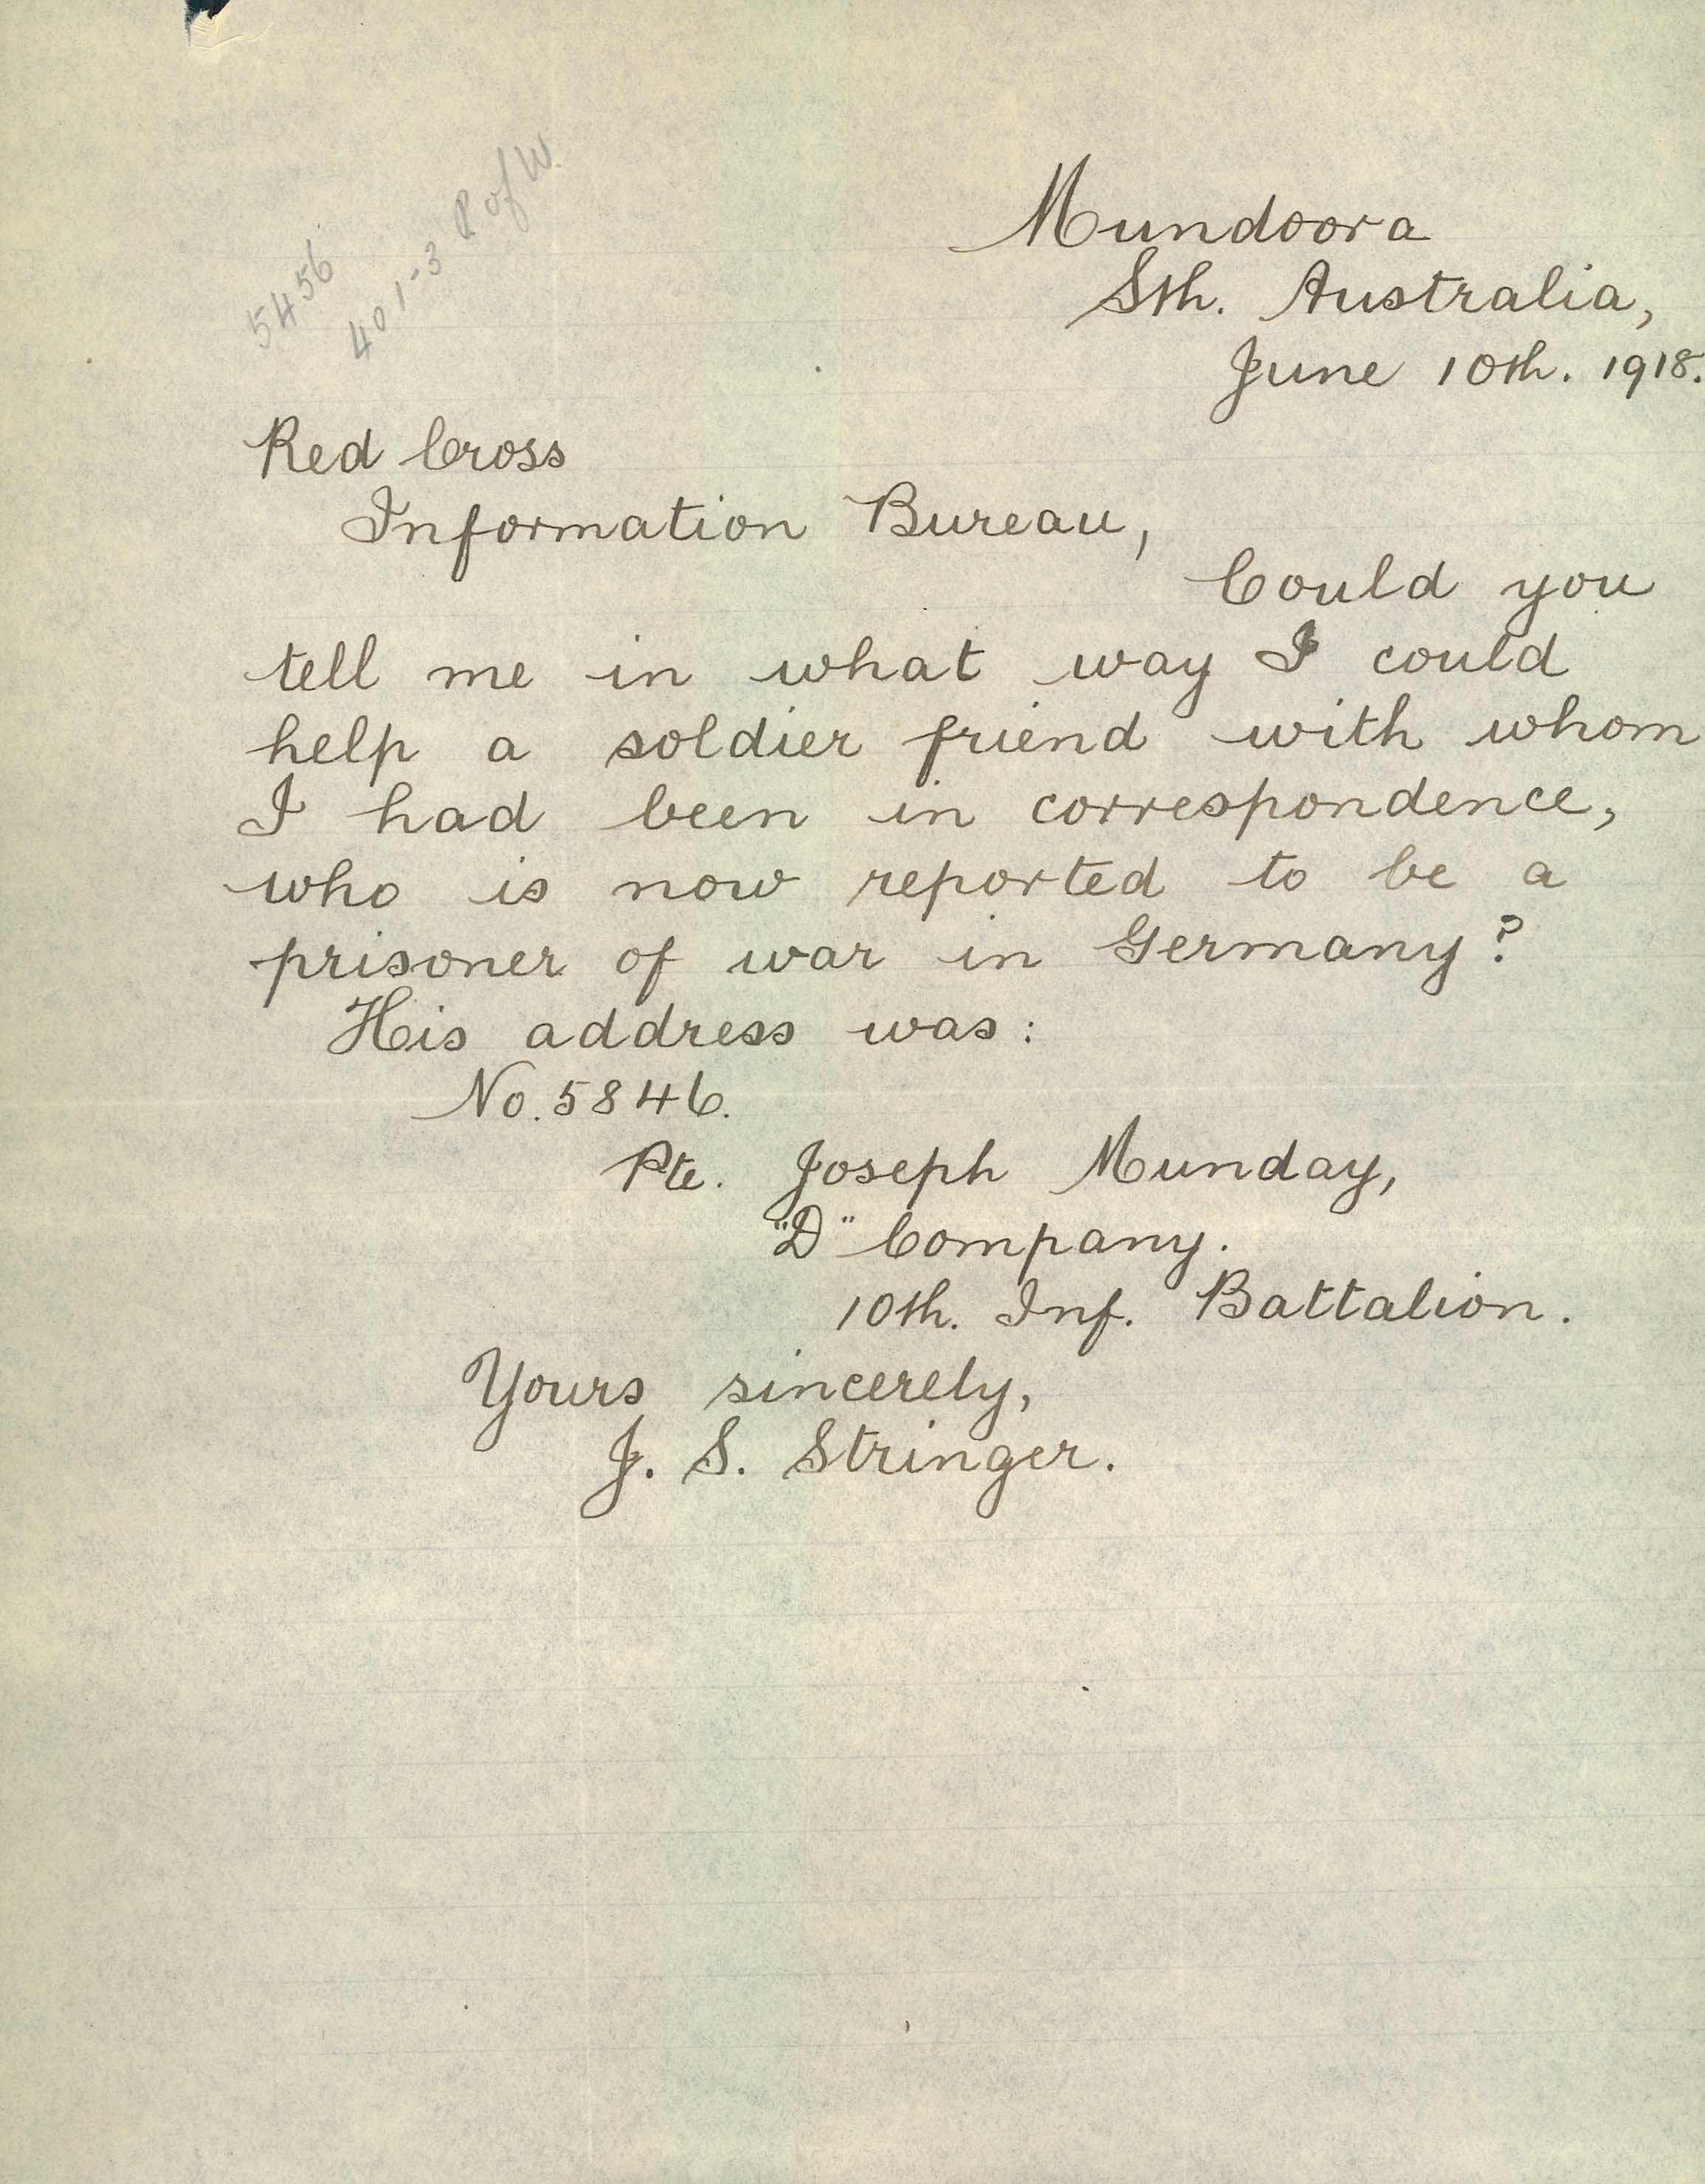 5456
401-3 P of W.
Mundoora
Sth. Australia,
June 10th. 1918.
Red Cross
Information Bureau,
Could you
tell me in what way I could
help a soldier friend with whom
I had been in correspondence,
who is now reported to be a
prisoner of war in Germany?
His address was:
No. 5846.
Pte. Joseph Munday,
"D" Company.
10th. Inf. Battalion.
Yours sincerely,
J. S. Stringer.